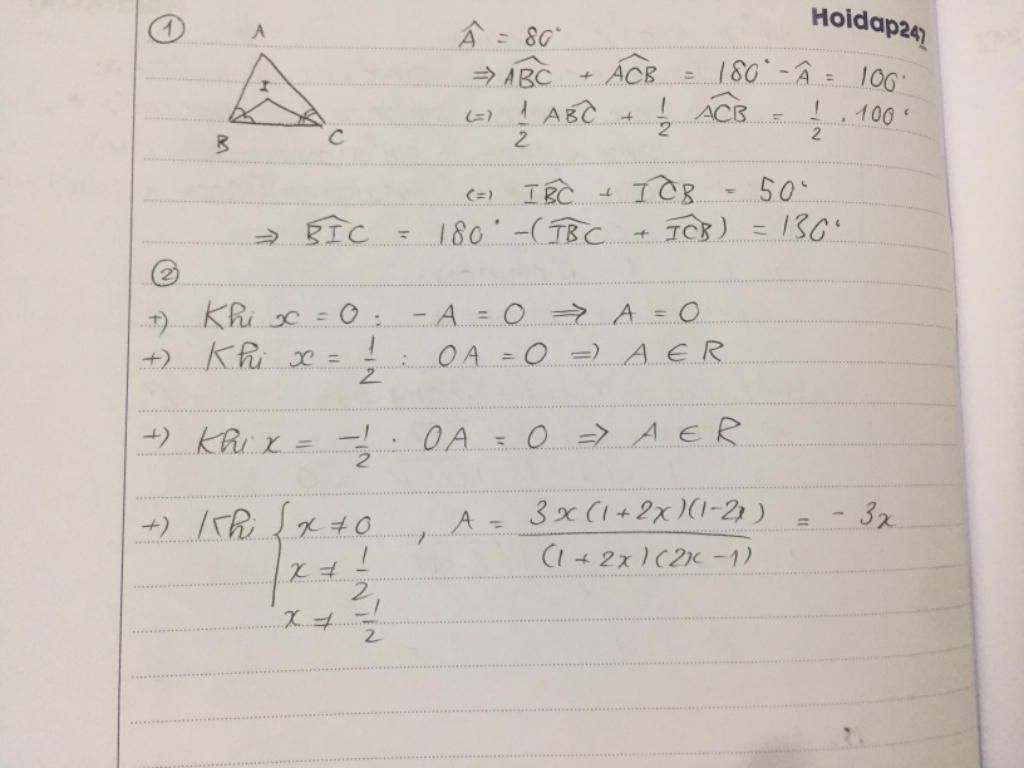 Hoidap247
① A
I
B C
Â = 80°
⇒ ABC^ + ACB^ = 180° - Â = 100°
(=) 1/2 ABC^ + 1/2 ACB^ = 1/2 . 100°
(=) IBC^ + ICB^ = 50°
⇒ BIC^ = 180° - (IBC^ + ICB^) = 130°
②
+) Khi x = 0 : - A = 0 ⇒ A = 0
+) Khi x = 1/2 : 0A = 0 =) A ∈ R
+) Khi x = -1/2 . 0A = 0 ⇒ A ∈ R
+) Khi { x ≠ 0 , A = 3x(1+2x)(1-2x) / (1+2x)(2x-1) = - 3x
x ≠ 1/2
x ≠ -1/2